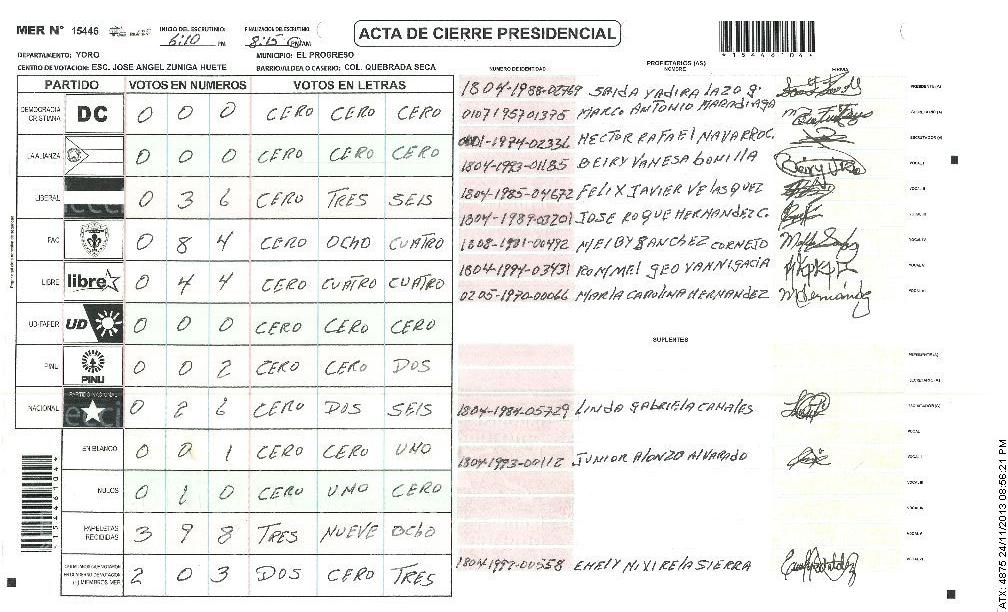 MER N° 15446 INICIO DEL ESCRUTINIO: 6:10 PM FINALIZACION DEL ESCRUTINIO: 8:15 PM/AM
ACTA DE CIERRE PRESIDENCIAL
DEPARTAMENTO: YORO MUNICIPIO: EL PROGRESO
CENTRO DE VOTACION: ESC. JOSE ANGEL ZUNIGA HUETE BARRIO/ALDEA O CASERIO: COL. QUEBRADA SECA
PARTIDO VOTOS EN NUMEROS VOTOS EN LETRAS
DEMOCRACIA CRISTIANA DC 0 0 0 CERO CERO CERO
LA ALIANZA 0 0 0 CERO CERO CERO
LIBERAL 0 3 6 CERO TRES SEIS
PAC 0 8 4 CERO OCHO CUATRO
LIBRE libre 0 4 4 CERO CUATRO CUATRO
UD-FAPER UD 0 0 0 CERO CERO CERO
PINU PINU 0 0 2 CERO CERO DOS
NACIONAL PARTIDO NACIONAL 0 2 6 CERO DOS SEIS
EN BLANCO 0 0 1 CERO CERO UNO
NULOS 0 1 0 CERO UNO CERO
PAPELETAS RECIBIDAS 3 9 8 TRES NUEVE OCHO
2 0 3 DOS CERO TRES
NUMERO DE IDENTIDAD PROPIETARIOS (AS) NOMBRE FIRMA
1804-1988-02769 SAIDA YADIRA LAZO G. PRESIDENTE (A)
0107195701375 MARCO ANTONIO MARADIAGA
1974-02336 HECTOR RAFAEL NAVARRO C. ESCRUTADOR (A)
1804-1993-01185 BEIRY VANESA BONILLA VOCAL I
1804-1985-04672 FELIX JAVIER VELASQUEZ VOCAL II
1804-1989-03201 JOSE ROQUE HERNANDEZ C. VOCAL III
1808-1981-00492 MELBY SANCHEZ CORNEJO VOCAL IV
1804-1994-03431 ROMMEL GEOVANNI GACIA VOCAL V
0205-1970-00066 MARIA CAROLINA HERNANDEZ
SUPLENTES
1804-1984-05729 LINDA GABRIELA CANALES
1804-1993-00112 JUNIOR ALONZO ALVARADO
ENELY NIXIRELA SIERRA
ATX: 4875 24/11/2013 08:56:21 PM